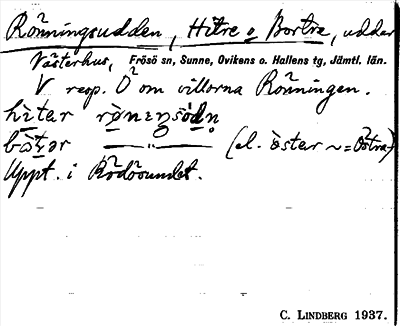 Rönningsudden, Hitre o Bortre, uddar
Västerhus, Frösö sn, Sunne, Ovikens o. Hallens tg, Jämtl. län.
V resp. Ö om villorna Rönningen.
hiter
(el. öster ~ = Östra)
Uppt. i Rödösundet.
C. LINDBERG 1937.